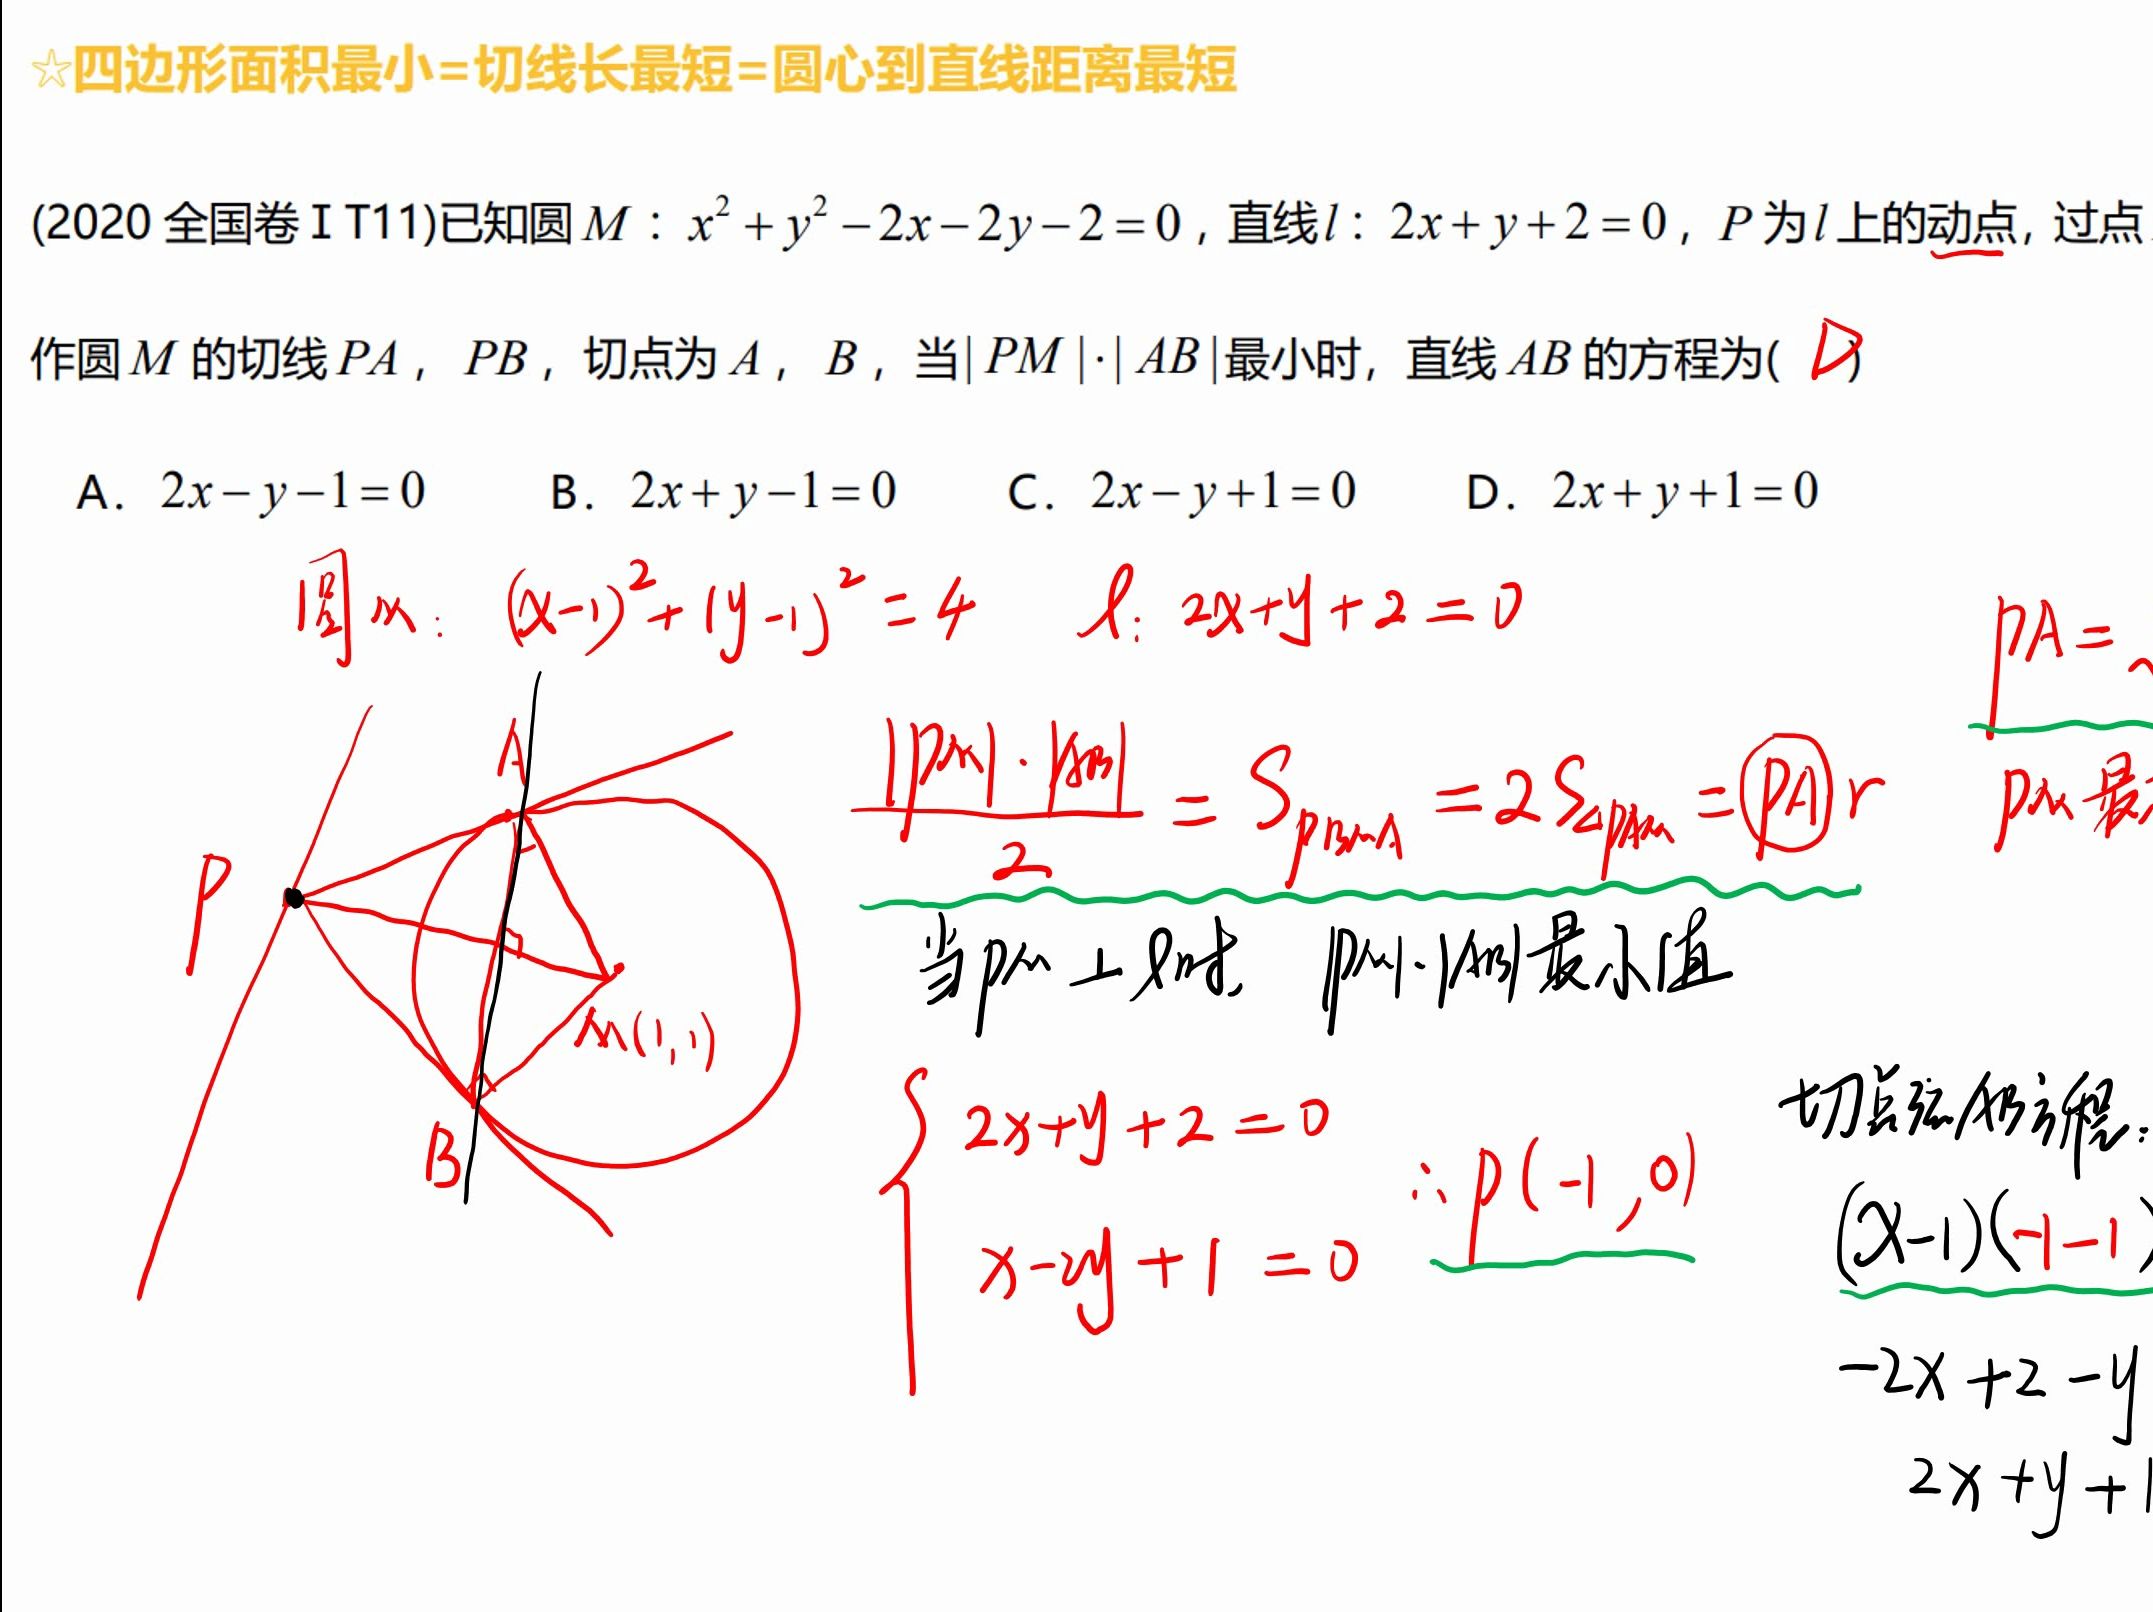 ☆四边形面积最小=切线长最短=圆心到直线距离最短
(2020 全国卷 I T11)已知圆 M：x²+y²−2x−2y−2=0，直线 l：2x+y+2=0，P 为 l 上的动点，过点
作圆 M 的切线 PA，PB，切点为 A，B，当|PM|·|AB|最小时，直线 AB 的方程为( D )
A．2x−y−1=0 B．2x+y−1=0 C．2x−y+1=0 D．2x+y+1=0
圆M: (x-1)²+(y-1)²=4 l: 2x+y+2=0
PA=
|PM|·|AB|/2 = S_PBMA = 2S_△PAM = PA r
PM 最
当PM⊥l时, |PM|·|AB|最小值
A
P
M(1,1)
B
2x+y+2=0
x-2y+1=0
∴P(-1,0)
切点弦AB方程:
(x-1)(-1-1)
-2x+2-y
2x+y+1